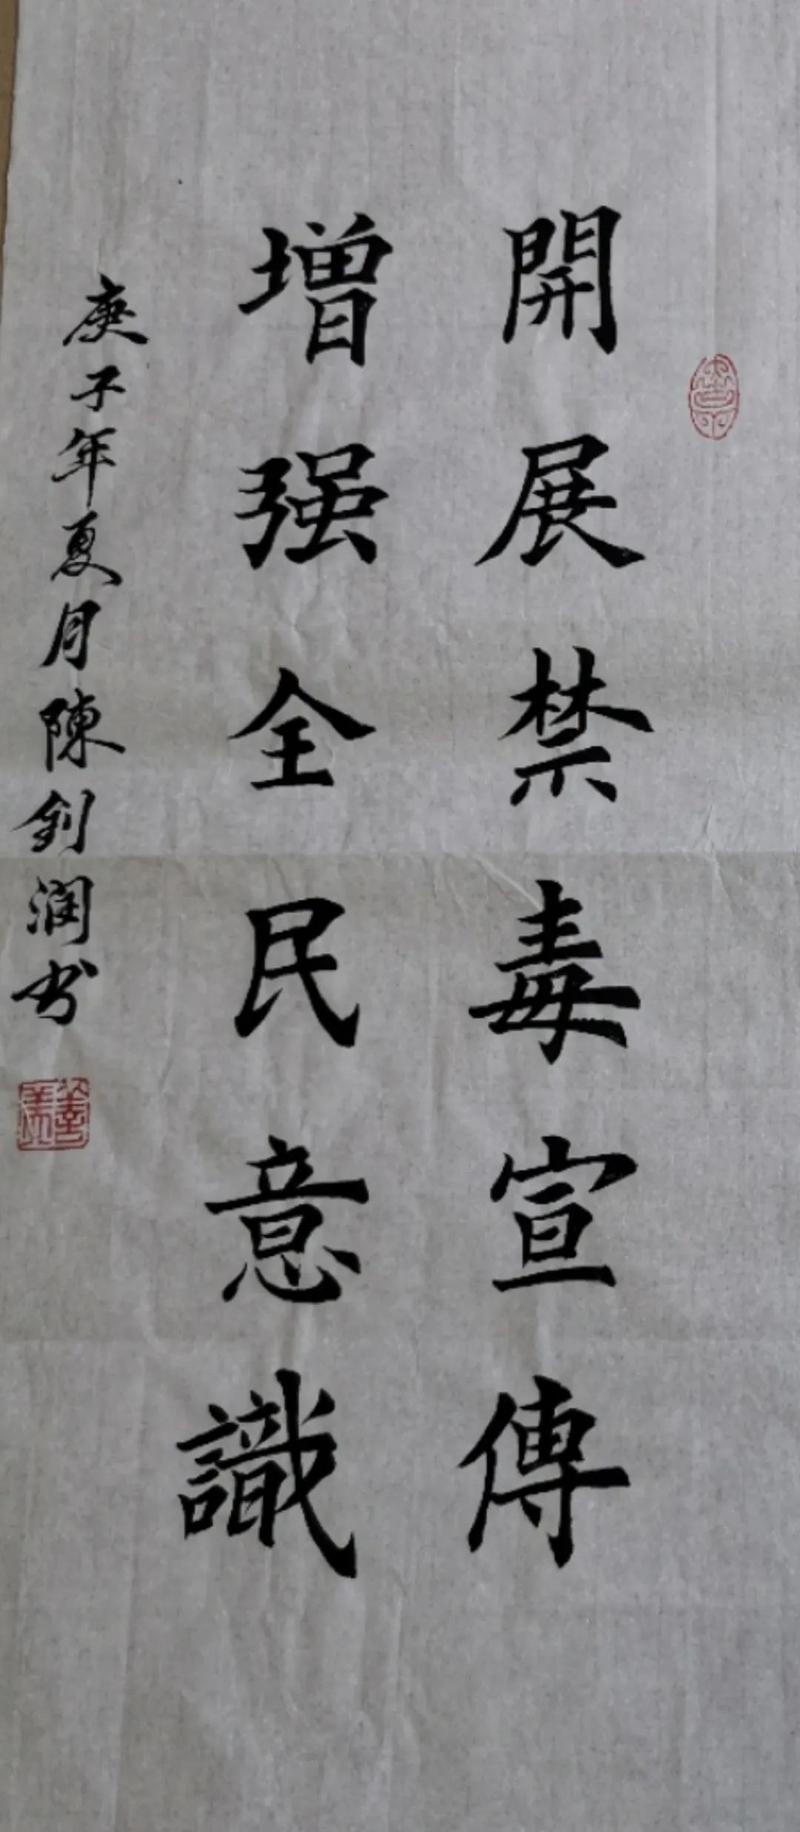 開展禁毒宣傳
增强全民意識
庚子年夏月陳釗潤书